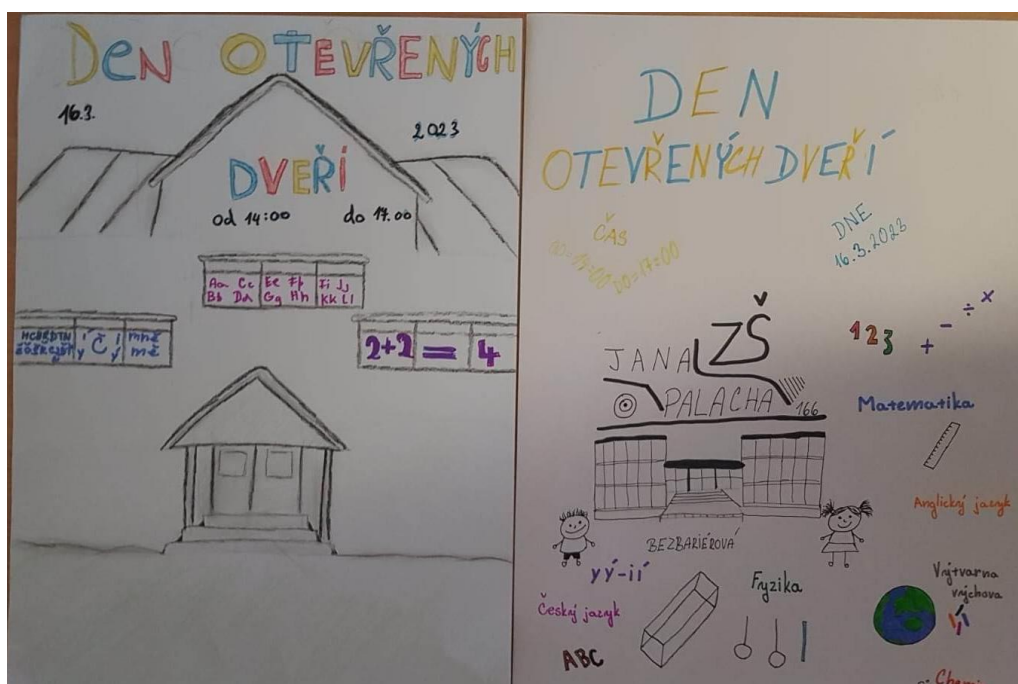 DeN OTEVŘENÝCH
16.3. 2023
DVEŘÍ
od 14:00 do 17.00
Aa Cc Ee Ff Ii Jj
Bb Dd Gg Hh KK Ll
HCBRDTN
í Č í
y ý
mně
mě
2+2 = 4
DEN
OTEVŘENÝCH DVEŘÍ
ČAS
OD=14:00 DO=17:00
DNE
16.3.2023
ZŠ
JANA
PALACHA 166
1 2 3 + - ÷ x
Matematika
Anglický jazyk
BEZBARIÉROVÁ
yý-ií
Český jazyk
ABC
Fyzika
Výtvarna
výchova